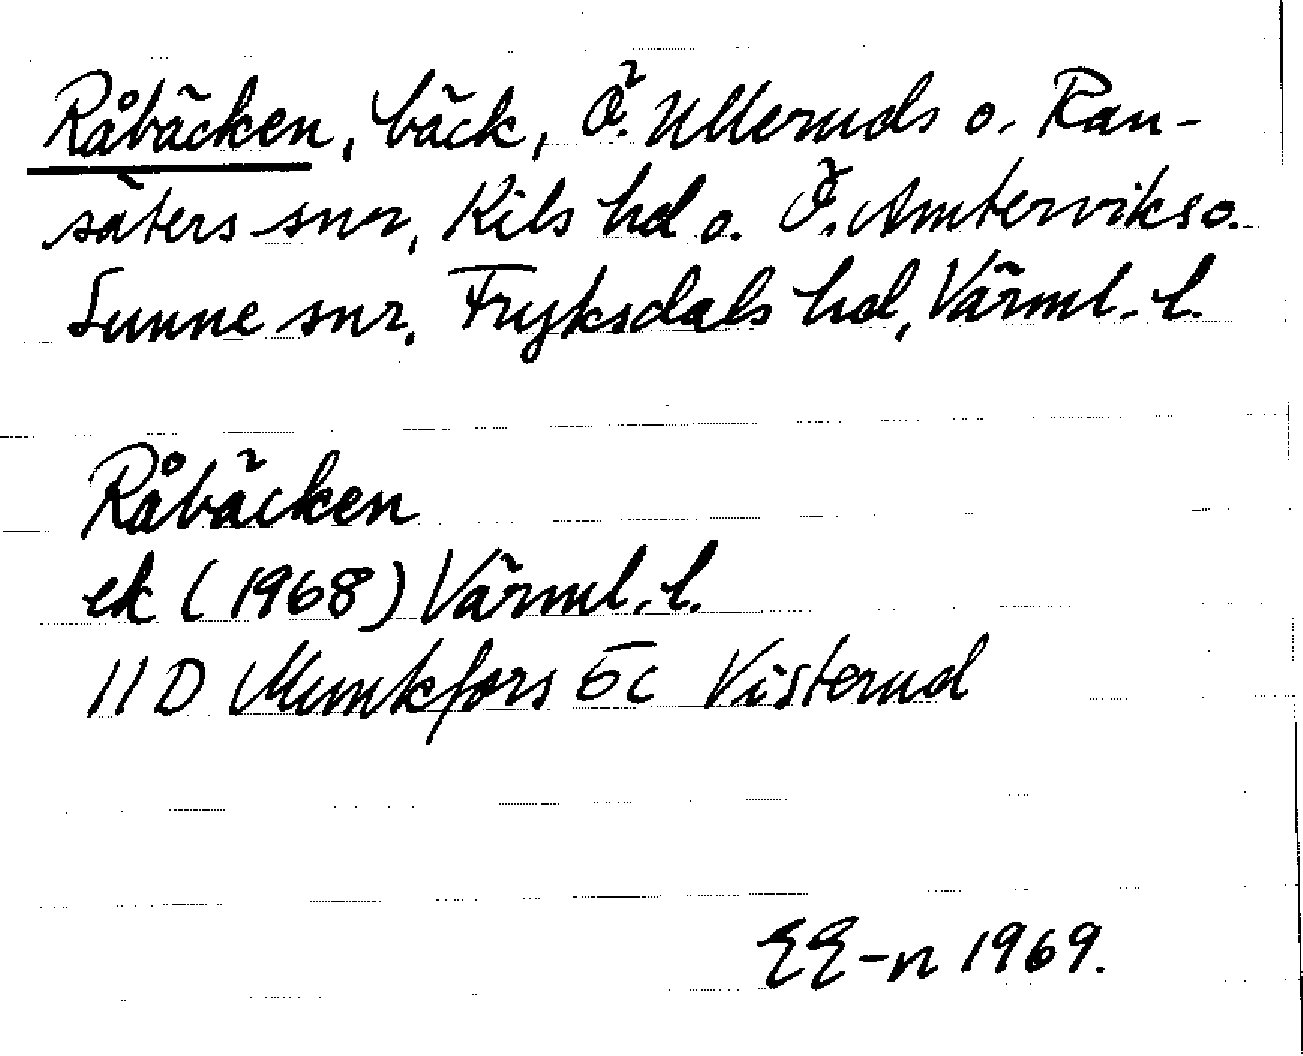 Råbäcken, bäck, Ö. Ulleruds o. Ran-
säters snr, Kils hd o. Ö. Ämterviks o.
Sunne snr, Fryksdals hd, Värml. l.
Råbäcken
ek (1968) Värml. l.
11 D Munkfors 5c Visterud
EE-n 1969.